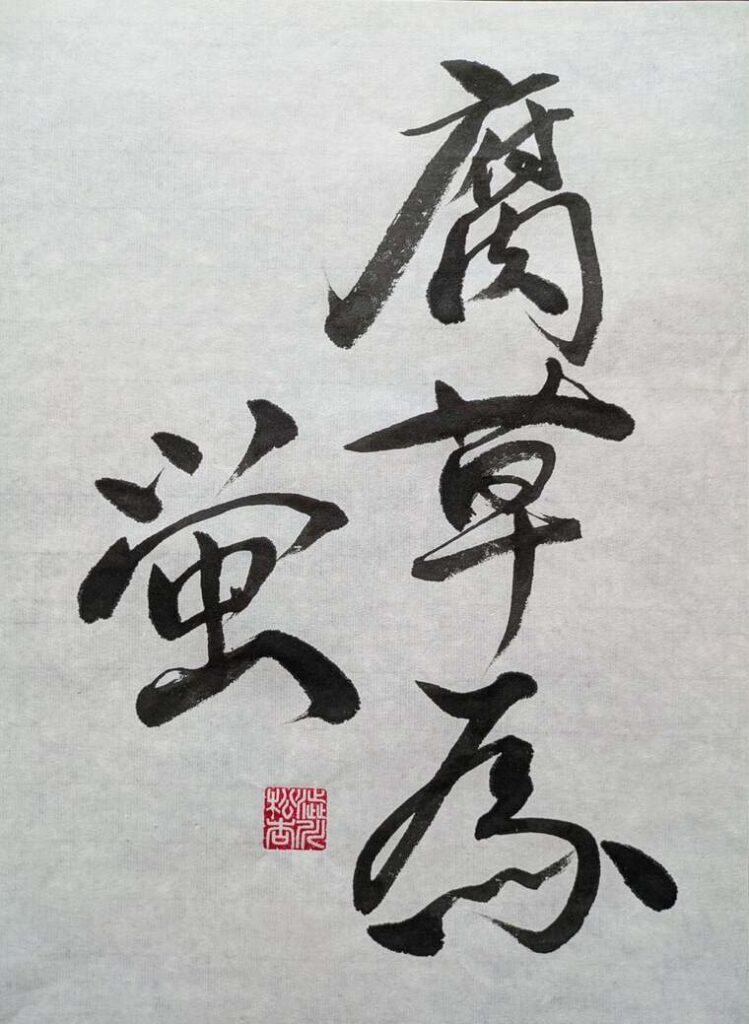 腐草為
蛍